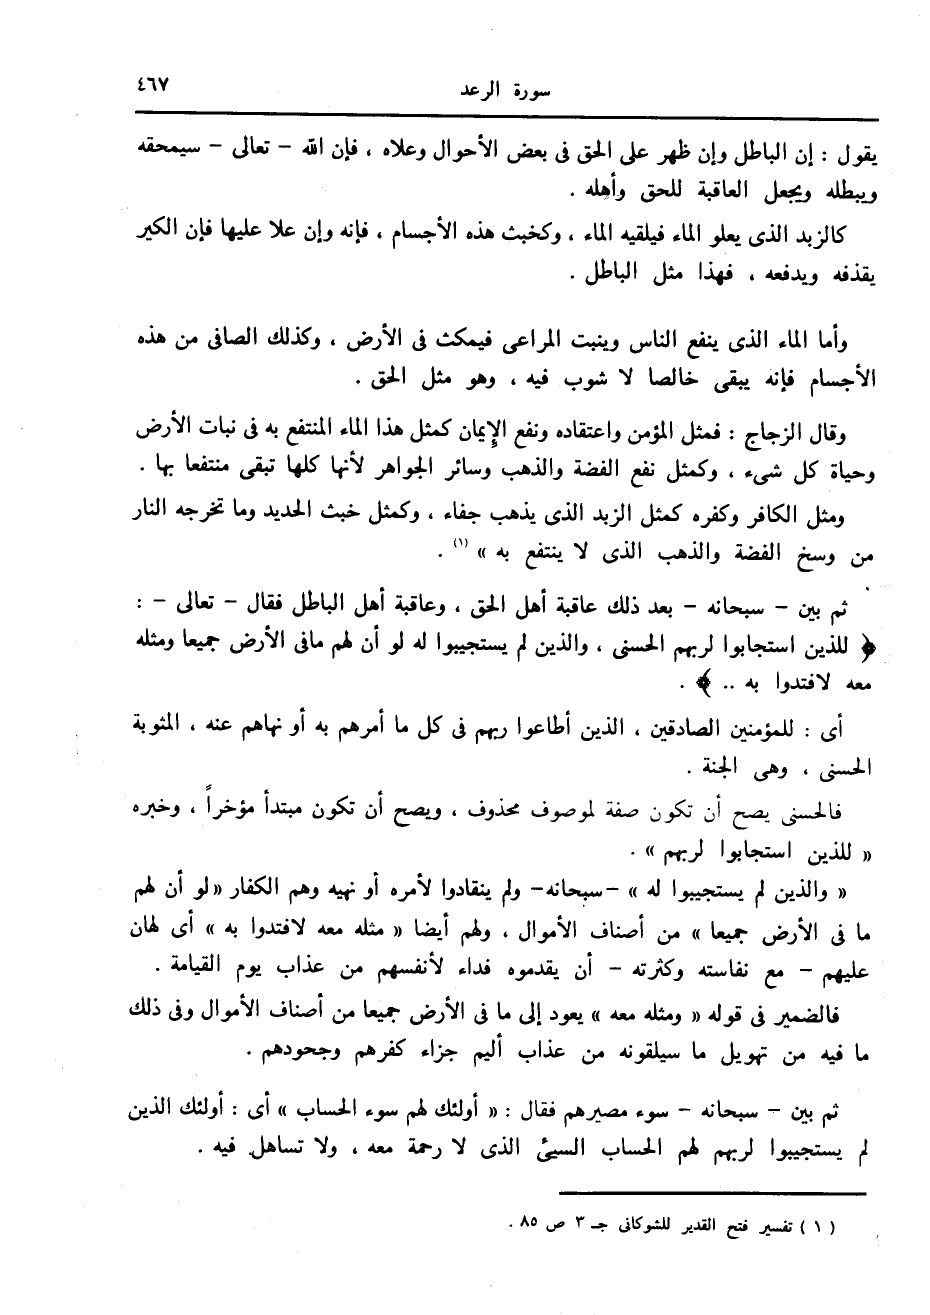 سورة الرعد ٤٦٧
يقول : إن الباطل وإن ظهر على الحق فى بعض الأحوال وعلاه ، فإن الله – تعالى – سيمحقه
ويبطله ويجعل العاقبة للحق وأهله .
كالزبد الذى يعلو الماء فيلقيه الماء ، وكخبث هذه الأجسام ، فإنه وإن علا عليها فإن الكير
يقذفه ويدفعه ، فهذا مثل الباطل .
وأما الماء الذى ينفع الناس وينبت المراعى فيمكث فى الأرض ، وكذلك الصافى من هذه
الأجسام فإنه يبقى خالصا لا شوب فيه ، وهو مثل الحق .
وقال الزجاج : فمثل المؤمن واعتقاده ونفع الإِيمان كمثل هذا الماء المنتفع به فى نبات الأرض
وحياة كل شىء ، وكمثل نفع الفضة والذهب وسائر الجواهر لأنها كلها تبقى منتفعا بها .
ومثل الكافر وكفره كمثل الزبد الذى يذهب جفاء ، وكمثل خبث الحديد وما تخرجه النار
من وسخ الفضة والذهب الذى لا ينتفع به » (١) .
ثم بين – سبحانه – بعد ذلك عاقبة أهل الحق ، وعاقبة أهل الباطل فقال – تعالى – :
﴿ للذين استجابوا لربهم الحسنى ، والذين لم يستجيبوا له لو أن لهم مافى الأرض جميعا ومثله
معه لافتدوا به .. ﴾ .
أى : للمؤمنين الصادقين ، الذين أطاعوا ربهم فى كل ما أمرهم به أو نهاهم عنه ، المثوبة
الحسنى ، وهى الجنة .
فالحسنى يصح أن تكون صفة لموصوف محذوف ، ويصح أن تكون مبتدأ مؤخراً ، وخبره
« للذين استجابوا لربهم » .
« والذين لم يستجيبوا له » –سبحانه– ولم ينقادوا لأمره أو نهيه وهم الكفار «لو أن لهم
ما فى الأرض جميعا» من أصناف الأموال ، ولهم أيضا « مثله معه لافتدوا به » أى لهان
عليهم – مع نفاسته وكثرته – أن يقدموه فداء لأنفسهم من عذاب يوم القيامة .
فالضمير فى قوله « ومثله معه » يعود إلى ما فى الأرض جميعا من أصناف الأموال وفى ذلك
ما فيه من تهويل ما سيلقونه من عذاب أليم جزاء كفرهم وجحودهم .
ثم بين – سبحانه – سوء مصيرهم فقال : « أولئك لهم سوء الحساب » أى : أولئك الذين
لم يستجيبوا لربهم لهم الحساب السيئ الذى لا رحمة معه ، ولا تساهل فيه .
( ١ ) تفسير فتح القدير للشوكانى جـ ٣ ص ٨٥ .